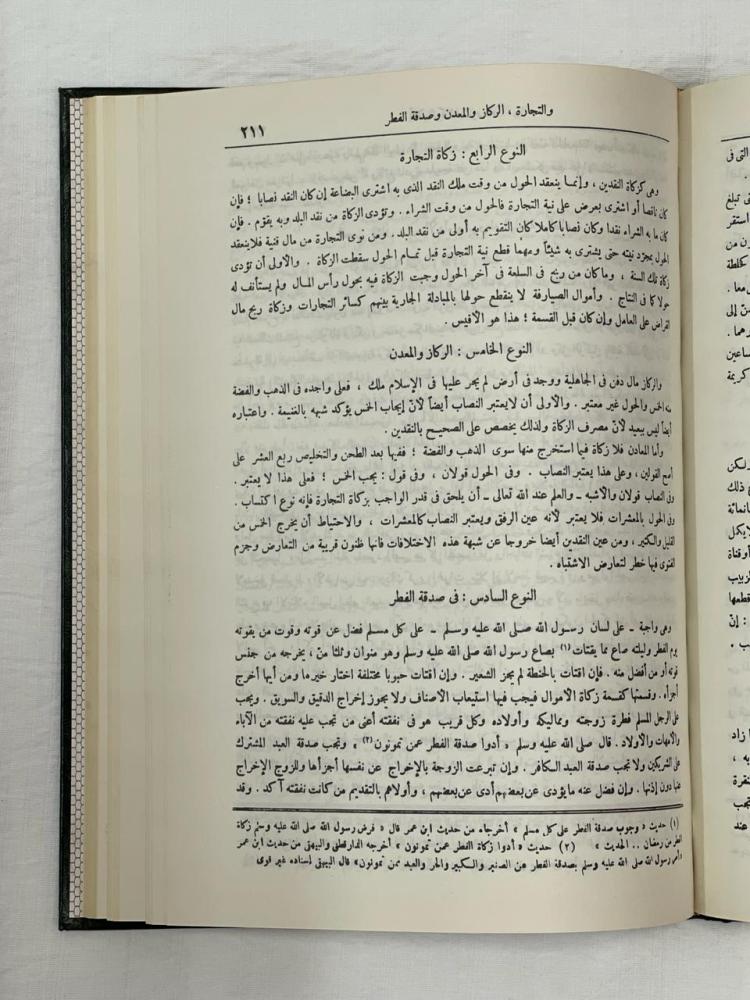 والتجارة ، الركاز والمعدن وصدقة الفطر
٢١١
النوع الرابع : زكاة التجارة
وهى كزكاة النقدين ، وإنمـا ينعقد الحول من وقت ملك النقد الذى به اشترى البضاعة إن كان النقد نصابا ؛ فإن
كان ناقصا أو اشترى بعرض على نية التجارة فالحول من وقت الشراء . وتؤدى الزكاة من نقد البلد وبه يقوّم . فإن
كان ما به الشراء نقدا وكان نصابا كاملا كان التقويم به أولى من نقد البلد . ومن نوى التجارة من مال قنية فلا ينعقد
الحول بمجرّد نيته حتى يشترى به شيئاً ومهما قطع نية التجارة قبل تمـام الحول سقطت الزكاة . والأولى أن تؤدى
زكاة تلك السنة ، وما كان من ربح فى السلعة فى آخر الحول وجبت الزكاة فيه بحول رأس المـال ولم يستأنف له
حولا كما فى النتاج . وأموال الصيارفة لا ينقطع حولها بالمبادلة الجارية بينهم كسائر التجارات وزكاة ربح مال
القراض على العامل وإن كان قبل القسمة ؛ هذا هو الأقيس .
النوع الخامس : الركاز والمعدن
والركاز مال دفن فى الجاهلية ووجد فى أرض لم يجر عليها فى الإسلام ملك ، فعلى واجده فى الذهب والفضة
منه الخمس والحول غير معتبر . والأولى أن لا يعتبر النصاب أيضاً لأنّ إيجاب الخمس يؤكد شبهه بالغنيمة . واعتباره
أيضاً ليس ببعيد لأنّ مصرفه مصرف الزكاة ولذلك يخصص على الصحيح بالنقدين .
وأما المعادن فلا زكاة فيما استخرج منها سوى الذهب والفضة ؛ ففيها بعد الطحن والتخليص ربع العشر على
أصح القولين ، وعلى هذا يعتبر النصاب . وفى الحول قولان ، وفى قول : يجب الخمس ؛ فعلى هذا لا يعتبر .
وفى النصاب قولان والأشبه ـ والعلم عند الله تعالى ـ أن يلحق فى قدر الواجب بزكاة التجارة فإنه نوع اكتساب .
وفى الحول بالمعشرات فلا يعتبر لأنه عين الرفق ويعتبر النصاب كالمعشرات ، والاحتياط أن يخرج الخمس من
القليل والكثير ، ومن عين النقدين أيضا خروجا عن شبهة هذه الاختلافات فإنها ظنون قريبة من التعارض وجزم
الفتوى فيها خطر لتعارض الاشتباه .
النوع السادس : فى صدقة الفطر
وهى واجبة ـ على لسان رسـول الله صلى الله عليه وسلم ـ على كل مسلم فضل عن قوته وقوت من يقوته
يوم الفطر وليلته صاع مما يقتات (١) بصاع رسول الله صلى الله عليه وسلم وهو منوان وثلثا منّ ، يخرجه من جنس
قوته أو من أفضل منه . فإن اقتات بالحنطة لم يجز الشعير . وإن اقتات حبوبا مختلفة اختار خيرها ومن أيها أخرج
أجزأه . وقسمتها كقسمة زكاة الأموال فيجب فيها استيعاب الأصناف ولا يجوز إخراج الدقيق والسويق . ويجب
على الرجل المسلم فطرة زوجته ومماليكه وأولاده وكل قريب هو فى نفقته أعنى من تجب عليه نفقته من الآباء
والأمهات والأولاد . قال صلى الله عليه وسلم « أدوا صدقة الفطر عمن تمونون (٢) » وتجب صدقة العبد المشترك
على الشريكين ولا تجب صدقة العبد الكافر . وإن تبرعت الزوجة بالإخراج عن نفسها أجزأها وللزوج الإخراج
عنها دون إذنها . وإن فضل عنه ما يؤدى عن بعضهم أدى عن بعضهم ، وأولاهم بالتقديم من كانت نفقته آكد . وقد
(١) حديث « وجوب صدقة الفطر على كل مسلم » أخرجاه من حديث ابن عمر قال « فرض رسول الله صلى الله عليه وسلم زكاة
الفطر من رمضان .. الحديث » (٢) حديث « أدوا زكاة الفطر عمن تمونون » أخرجه الدارقطنى والبيهقى من حديث ابن عمر
«أمر رسول الله صلى الله عليه وسلم بصدقة الفطر عن الصغير والكبير والحر والعبد ممن تمونون» قال البيهقى إسناده غير قوى